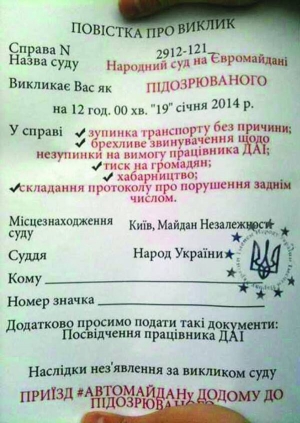 ПОВІСТКА ПРО ВИКЛИК
Справа N 2912-121_
Назва суду Народний суд на Євромайдані
Викликає Вас як ПІДОЗРЮВАНОГО
на 12 год. 00 хв. "19" січня 2014 р.
У справі ✓зупинка транспорту без причини;
✓брехливе звинувачення щодо
незупинки на вимогу працівника ДАІ;
✓тиск на громадян;
✓хабарництво;
✓складання протоколу про порушення заднім
числом.
Місцезнаходження Київ, Майдан Незалежності
суду
Суддя Народ України
Кому
Номер значка
Додатково просимо подати такі документи:
Посвідчення працівника ДАІ
Наслідки нез'явлення за викликом суду
ПРИЇЗД #АВТОМАЙДАНу ДОДОМУ ДО
ПІДОЗРЮВАНОГО